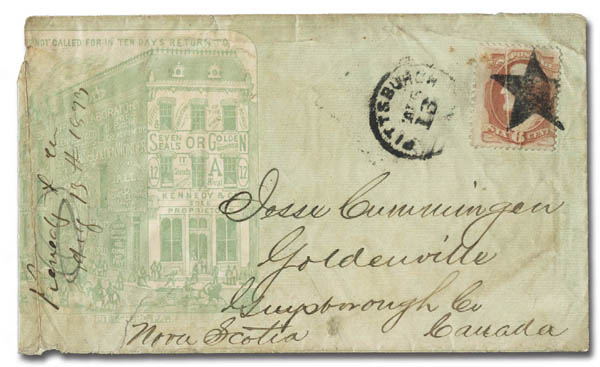 NOT CALLED FOR IN TEN DAYS RETURN TO
SEVEN OR GOLDEN
SEALS
12 A 12
KENNEDY &
PROPRIET
Kennedy & Co
Aug 13th 1873
PITTSBURGH
13
Jesse Cummingen
Goldenville
Guysborough Co
Nova Scotia Canada